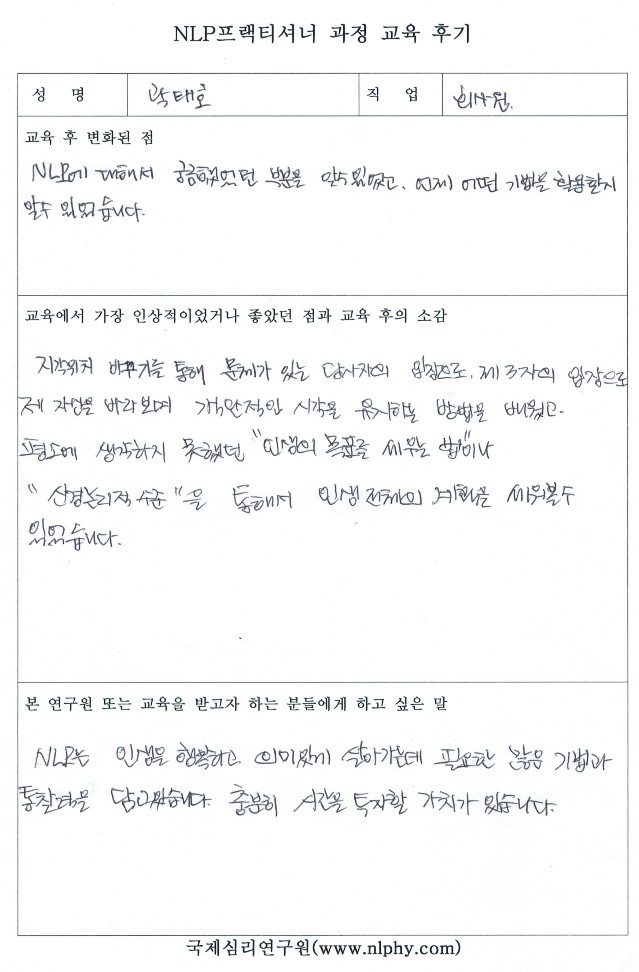 NLP프랙티셔너 과정 교육 후기
성 명 곽태호 직 업 회사원.
교육 후 변화된 점
NLP에 대해서 궁금했었던 부분을 알수 있었고, 언제 어떤 기법을 활용할지
알수 있었습니다.
교육에서 가장 인상적이었거나 좋았던 점과 교육 후의 소감
지각위치 바꾸기를 통해 문제가 있는 당사자의 입장으로, 제3자의 입장으로
제 자신을 바라보며 객관적인 시각을 유지하는 방법을 배웠고.
평소에 생각하지 못했던 "인생의 목표를 세우는 법"이나
"신경논리적 수준"을 통해서 인생 전체의 계획을 세워볼수
있었습니다.
본 연구원 또는 교육을 받고자 하는 분들에게 하고 싶은 말
NLP는 인생을 행복하고 의미있게 살아가는데 필요한 많은 기법과
통찰력을 담고있습니다. 충분히 시간을 투자할 가치가 있습니다.
국제심리연구원(www.nlphy.com)